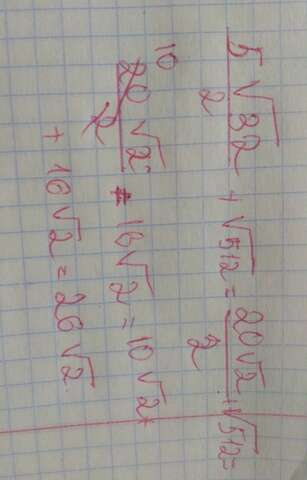 5√32/2 + √512 = 20√2/2 + √512 =
20√2/2 + 16√2 = 10√2 +
10
+ 16√2 = 26√2